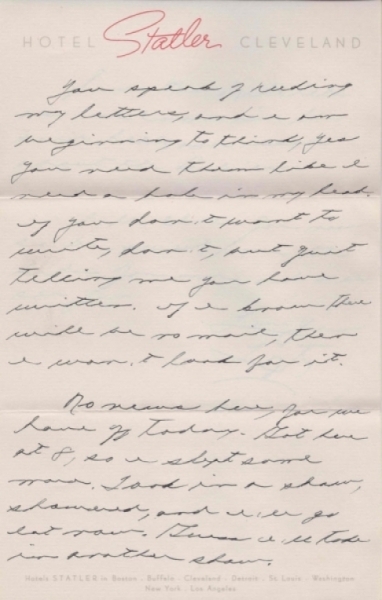 HOTEL Statler CLEVELAND
You speak of needing
my letters, and i am
beginning to think, yes
you need them like i
need a hole in my head.
if you don't want to
write, don't, but quit
telling me you have
written. if i know there
will be no mail, then
i won't look for it.
No news here, for we
have off today. Got here
at 8, so i slept some
more. Took in a show,
showered, and i'll go
eat now. Guess i'll take
in another show.
Hotels STATLER in Boston · Buffalo · Cleveland · Detroit · St. Louis · Washington
New York · Los Angeles